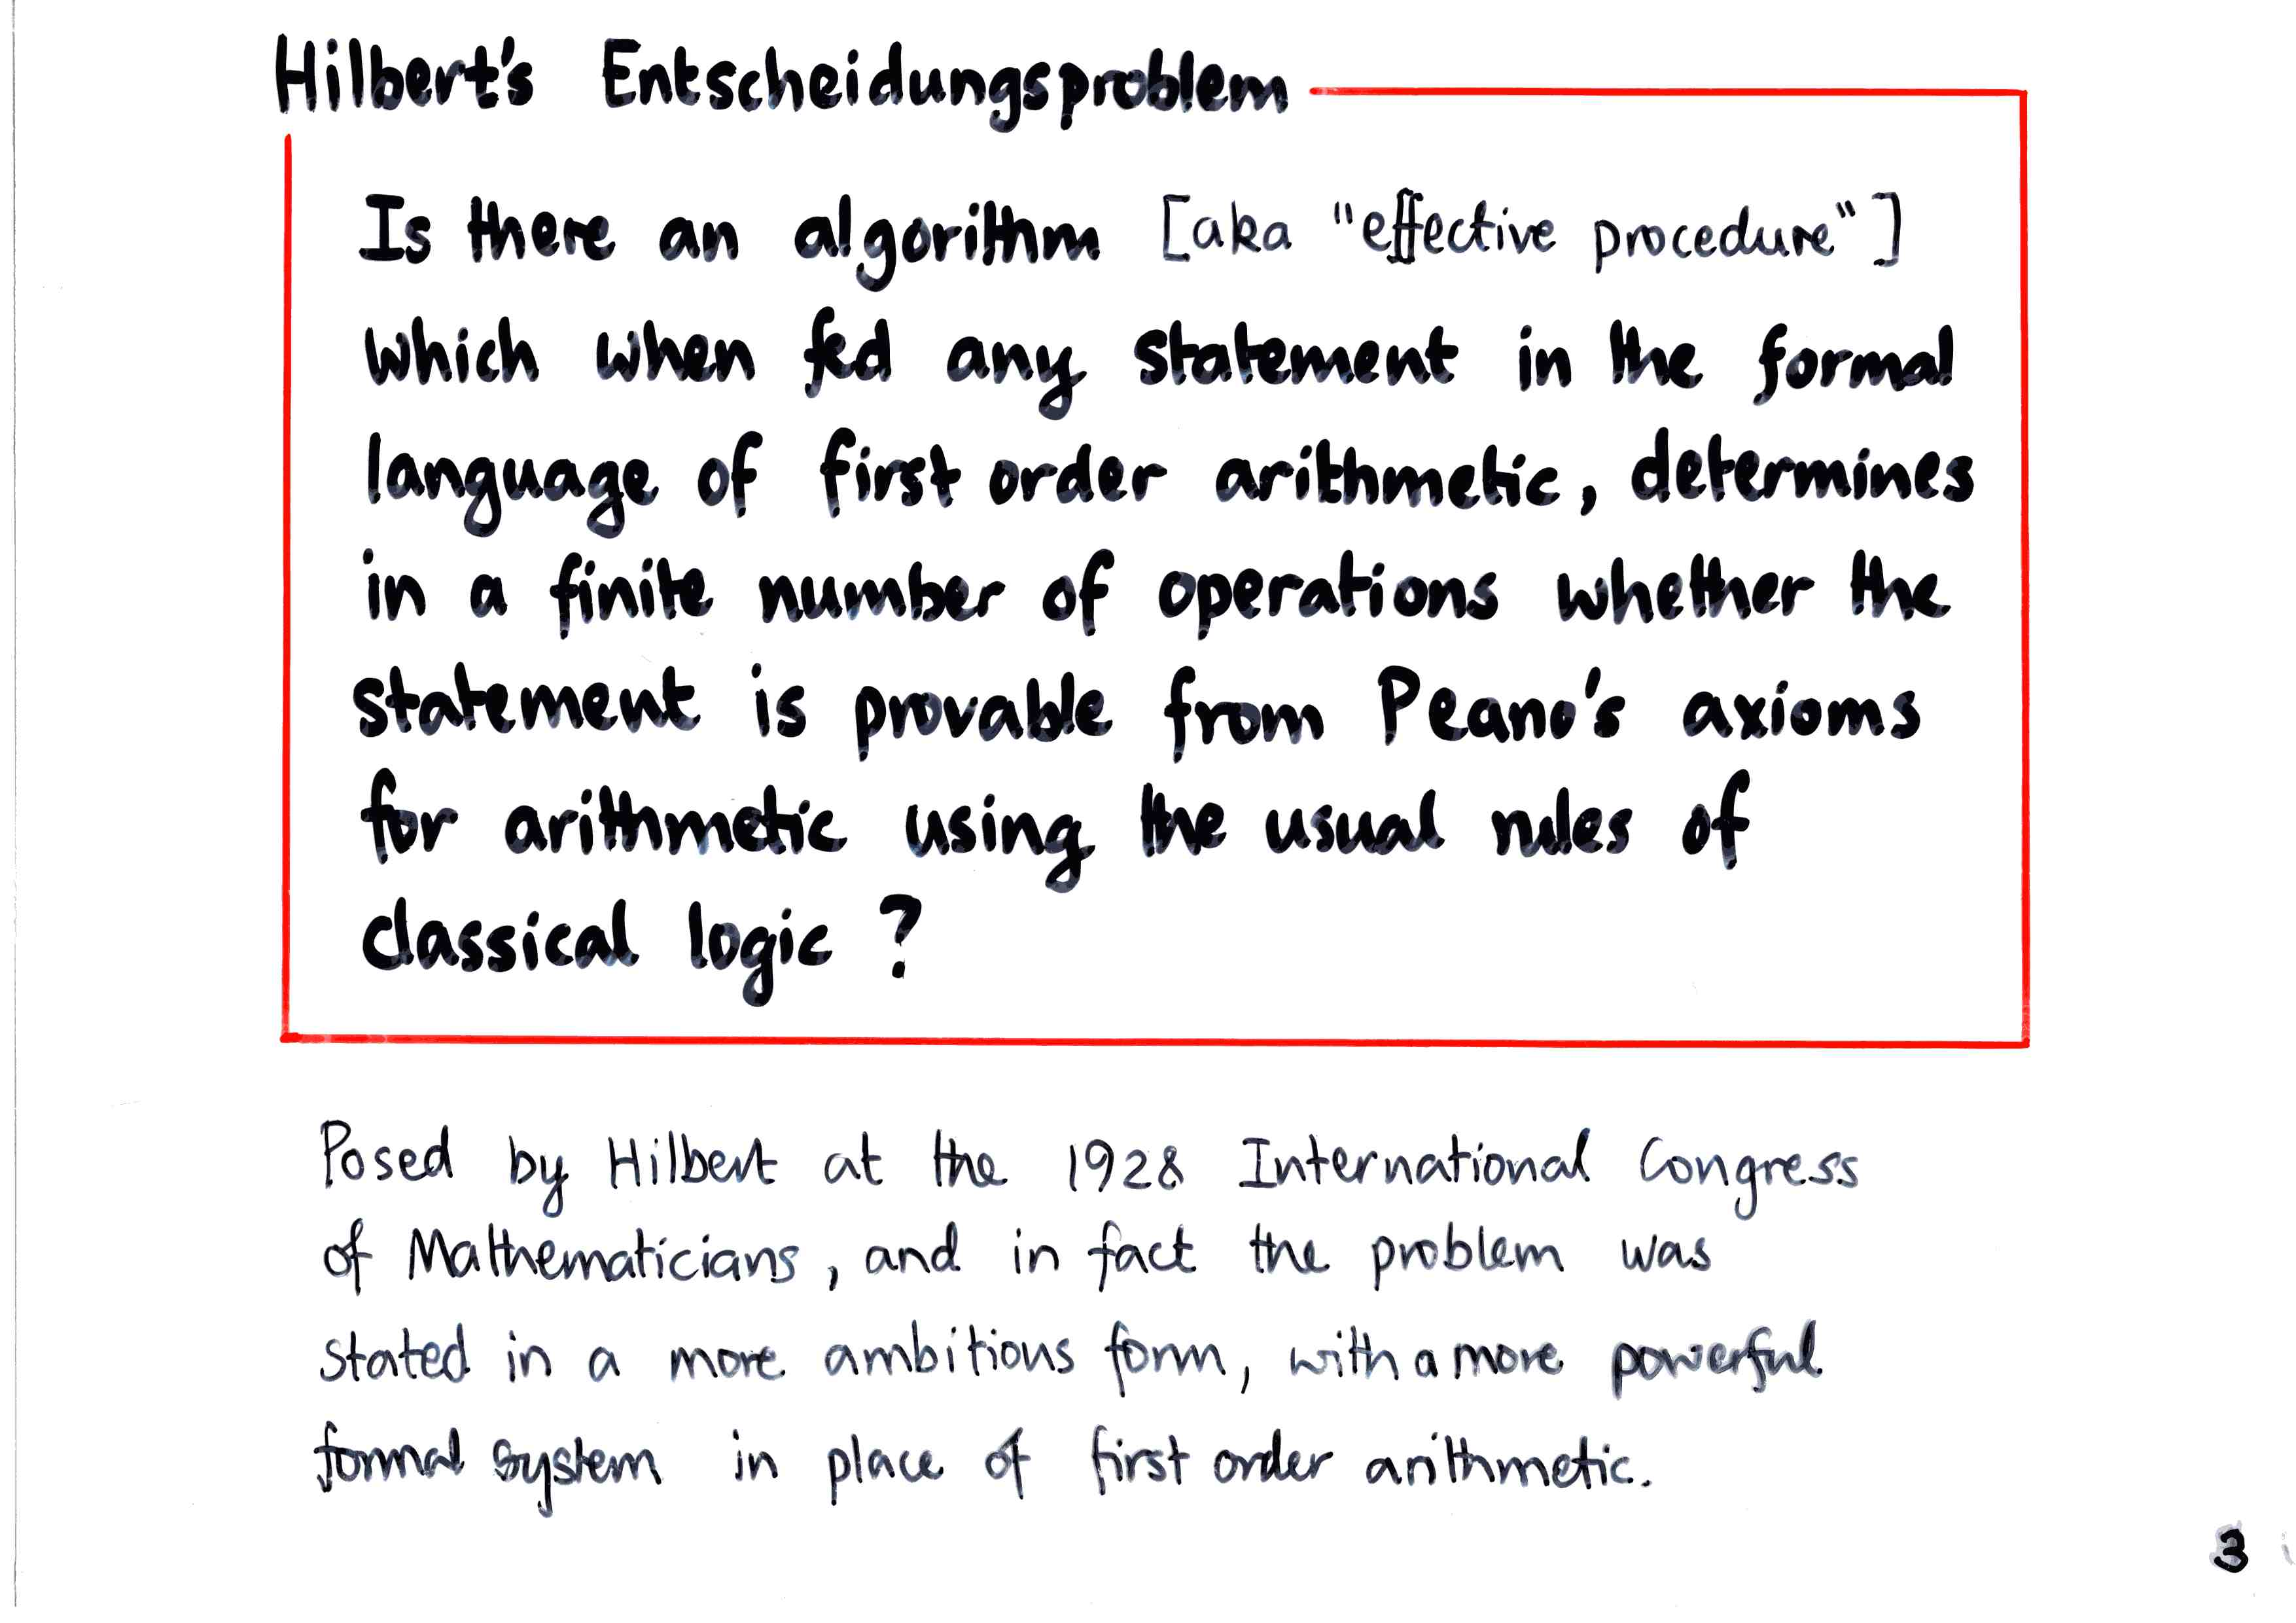 Hilbert's Entscheidungsproblem
Is there an algorithm [aka "effective procedure"]
which when fed any statement in the formal
language of first order arithmetic, determines
in a finite number of operations whether the
statement is provable from Peano's axioms
for arithmetic using the usual rules of
classical logic ?
Posed by Hilbert at the 1928 International Congress
of Mathematicians, and in fact the problem was
stated in a more ambitious form, with a more powerful
formal system in place of first order arithmetic.
3